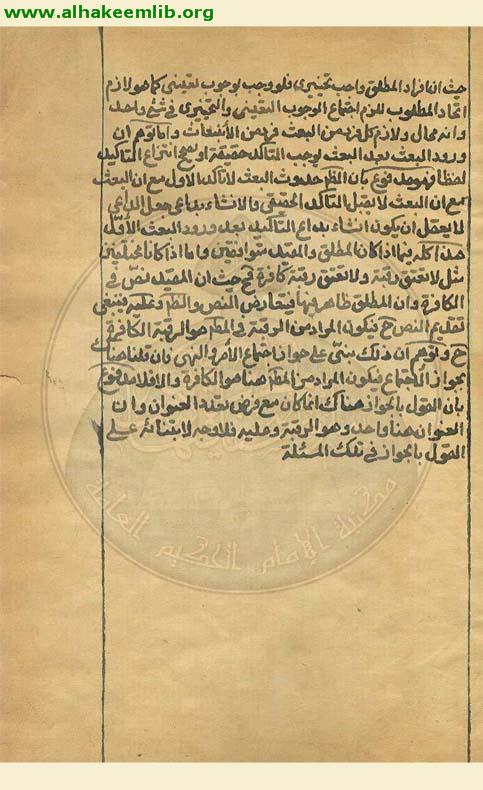 www.alhakeemlib.org
حيث ان افراد المطلق واجب تخييرى فلو وجب لوجوب تعيينى كما هو لازم
اتحاد المطلوب للزم اجتماع الوجوب التعينى والتخييرى فى شئ واحد
وانه محال ولازم كل فرد من البعث فرد من الانبعاث واما توهم ان
ورود البعث بعد البعث يوجب التأكد حقيقة او يصح انتزاع التأكيد
لفظا فهو مدفوع بان المظ حدوث البعث لا تأكد الاول مع ان البعث
مع ان البعث لا يقبل التأكد الحقيقى والانشاء بداعى جعل الداعى
لا يعقل ان يكون انشاء بداع التأكيد بعد ورود البعث الأول
هذا كله فيما اذا كان المطلق والمقيد متوافقين واما اذا كانا مختلفين
مثل لا تعتق رقبة ولا تعتق رقبة كافرة فح حيث ان المقيد نص فى
الكافرة وان المطلق ظاهر فيها فيتعارض النص والظ وعليه ينبغى
تقديم النص ح فيكون المراد من الرقبة فى المط هو الرقبة الكافرة
ح وتوهم ان ذلك يبتنى على جواز اجتماع الأمر والنهى فان قلنا هناك
بجواز الاجتماع فيكون المراد من المط هنا هو الكافرة والا فلا مدفوع
بان القول بالجواز هناك انما كان مع فرض تعدد العنوان وان
العنوان هنا واحد وهو الرقبة وعليه فلا وجه لابتنائه على
القول بالجواز فى تلك المسئلة
مكتبة الإمام الحكيم العامة